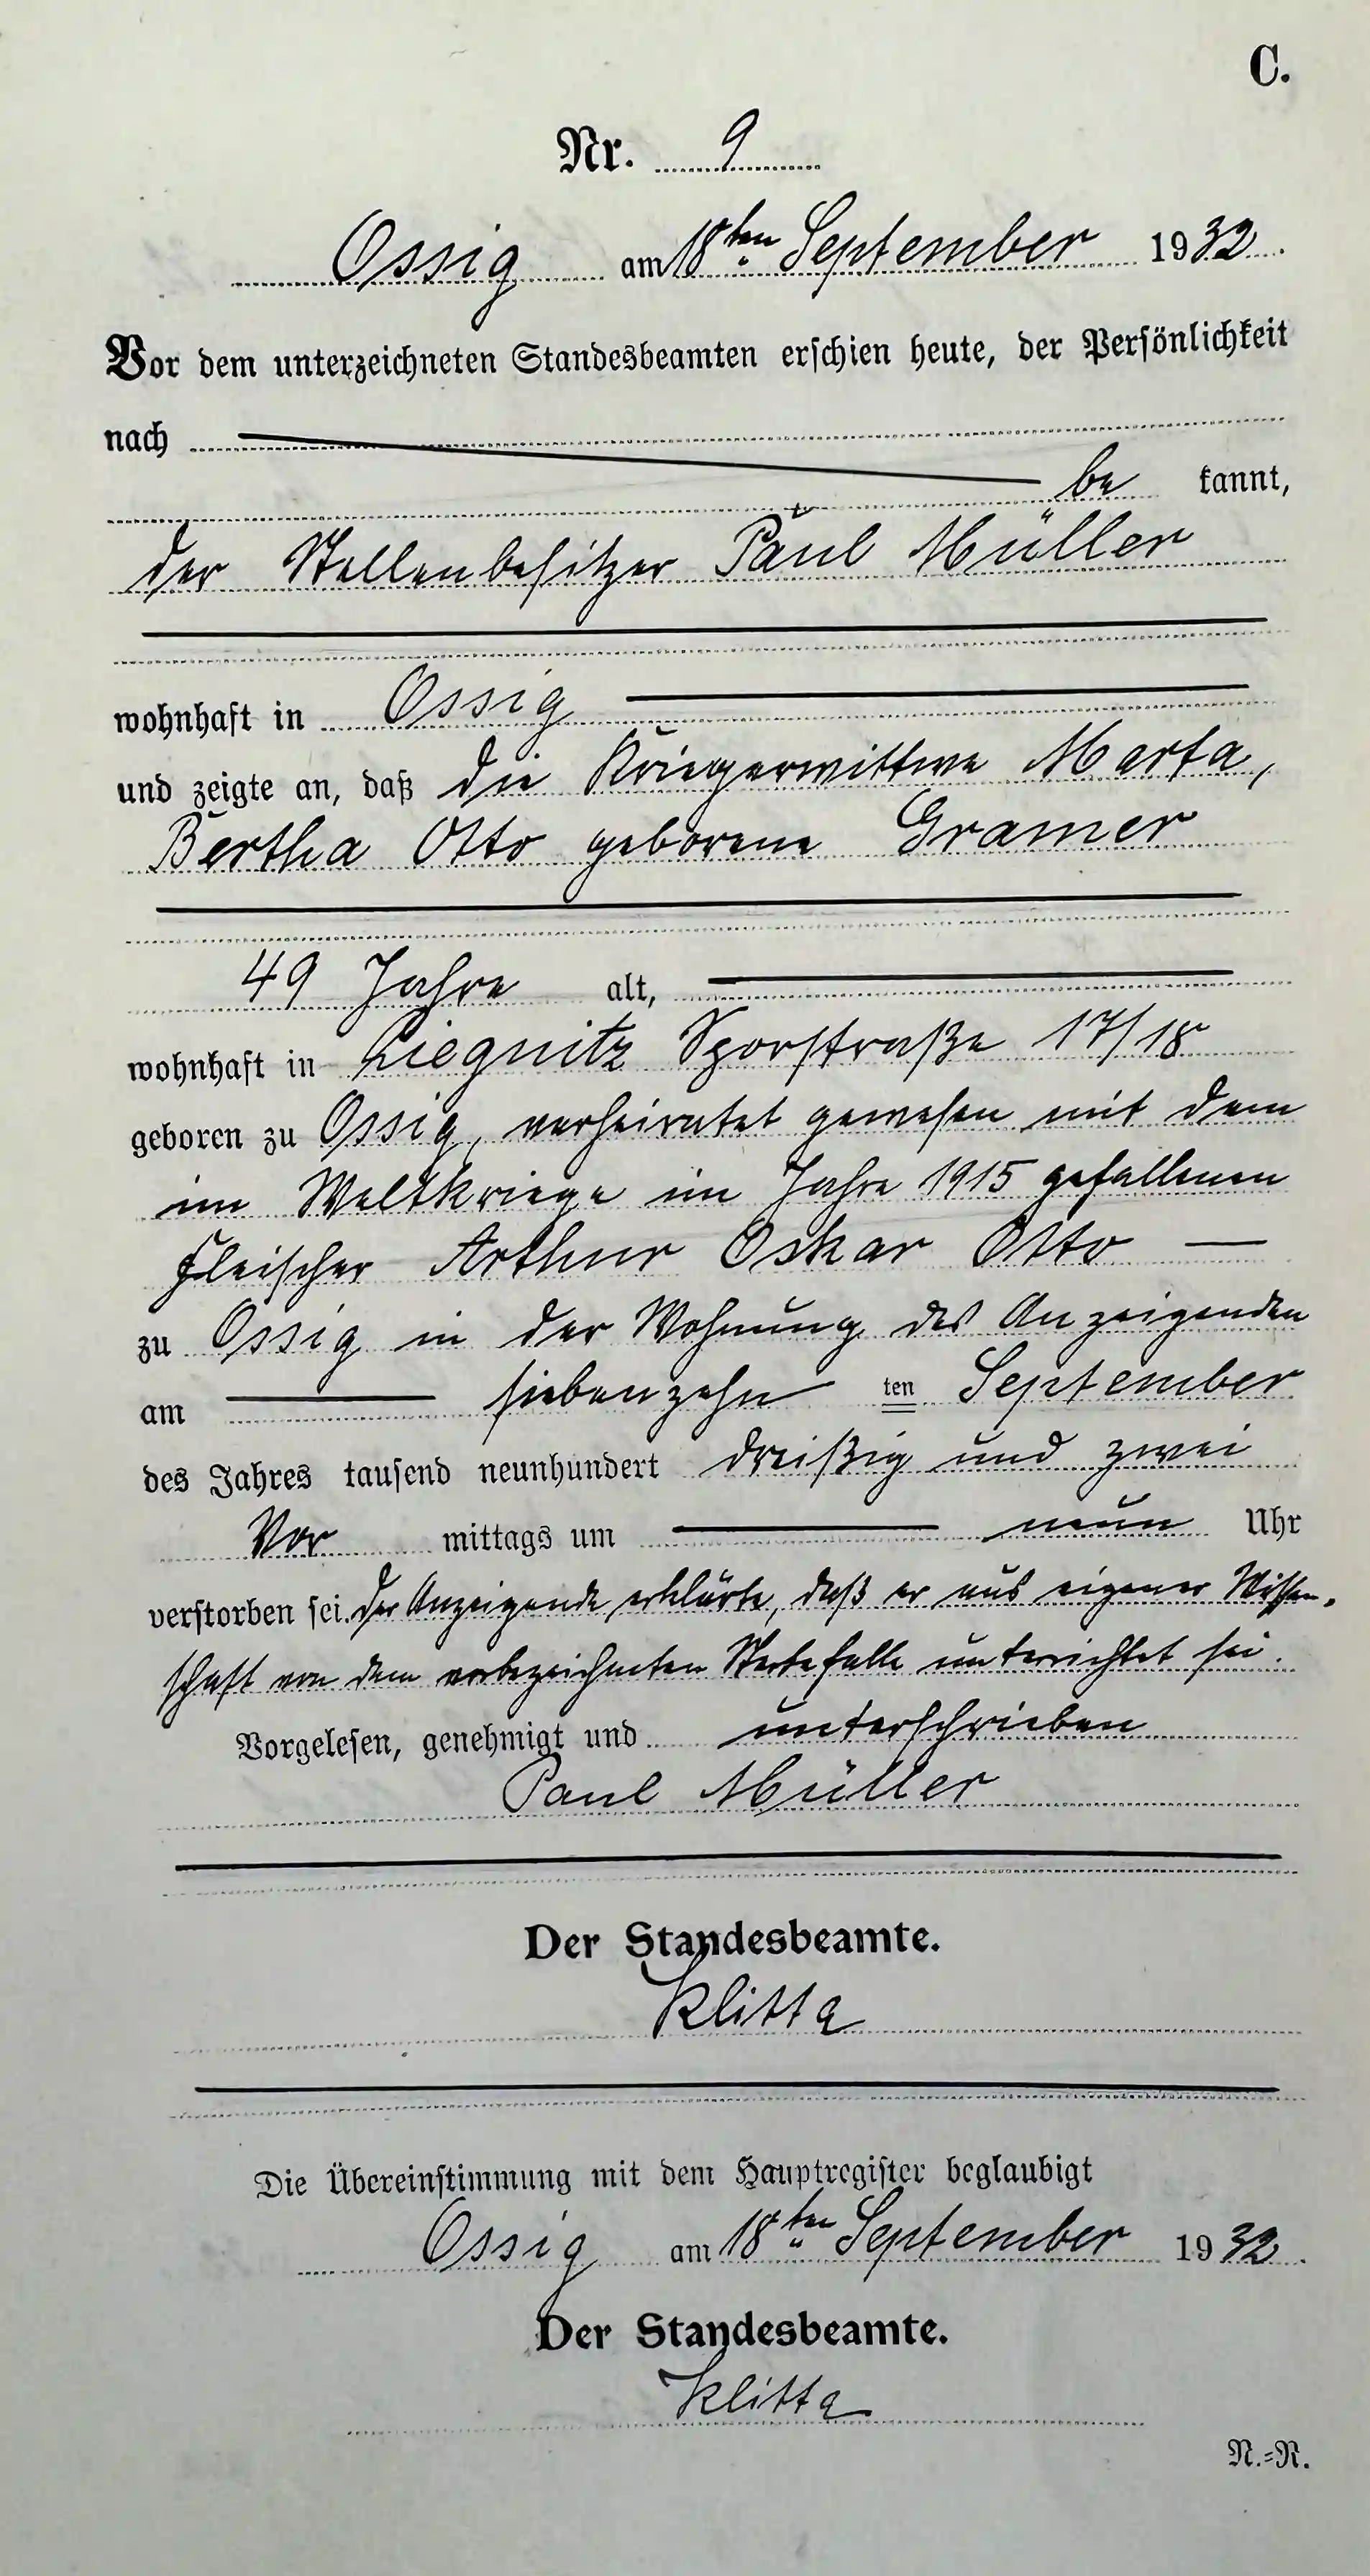 C.
Nr. 9
Ossig am 18ten September 1932.
Vor dem unterzeichneten Standesbeamten erschien heute, der Persönlichkeit
nach
be kannt,
der Stellenbesitzer Paul Müller
wohnhaft in Ossig
und zeigte an, daß die Kriegerwittwe Marta,
Bertha Otto geborene Gramer
49 Jahre alt,
wohnhaft in Liegnitz Sporstraße 17/18
geboren zu Ossig, verheiratet gewesen mit dem
im Weltkriege im Jahre 1915 gefallenen
Fleischer Arthur Oskar Otto —
zu Ossig in der Wohnung des Anzeigenden
am siebenzehn ten September
des Jahres tausend neunhundert dreißig und zwei
Vor mittags um neun Uhr
verstorben sei. Der Anzeigende erklärte, daß er aus eigener Wissen-
schaft von dem vorbezeichneten Sterbefalle unterrichtet sei.
Vorgelesen, genehmigt und unterschrieben
Paul Müller
Der Standesbeamte.
Klitta
Die Übereinstimmung mit dem Hauptregister beglaubigt
Ossig am 18ten September 1932.
Der Standesbeamte.
Klitta
N.=R.